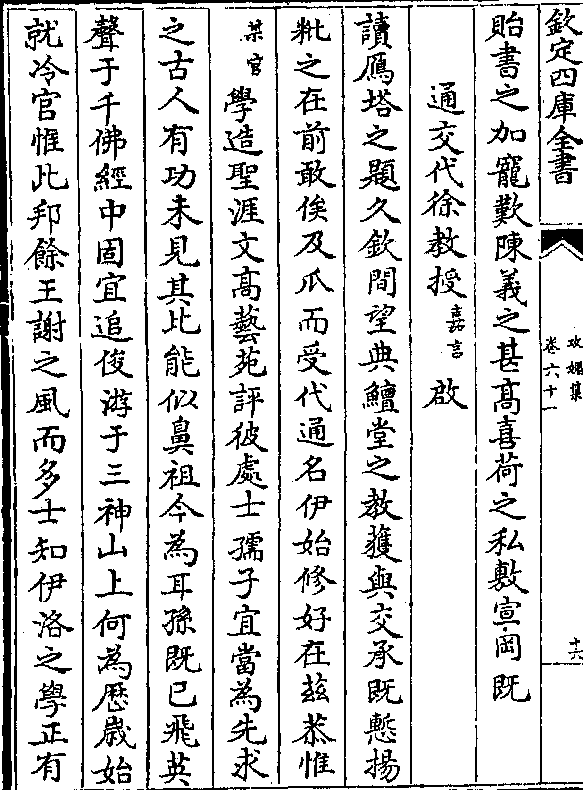 欽定四庫全書
攻媿集
卷六十一
十六
貽書之加寵歎陳義之甚髙喜荷之私敷宣罔既
通交代徐教授嘉言啟
讀鴈塔之題久欽間望典鱣堂之教獲與交承既慙揚
粃之在前敢俟及瓜而受代通名伊始修好在兹恭惟
某官學造聖涯文髙藝苑評彼處士孺子宜當為先求
之古人有功未見其比能似鼻祖今為耳孫既已飛英
聲于千佛經中固宜追俊游于三神山上何為歴歲始
就冷官惟此邦餘王謝之風而多士知伊洛之學正有